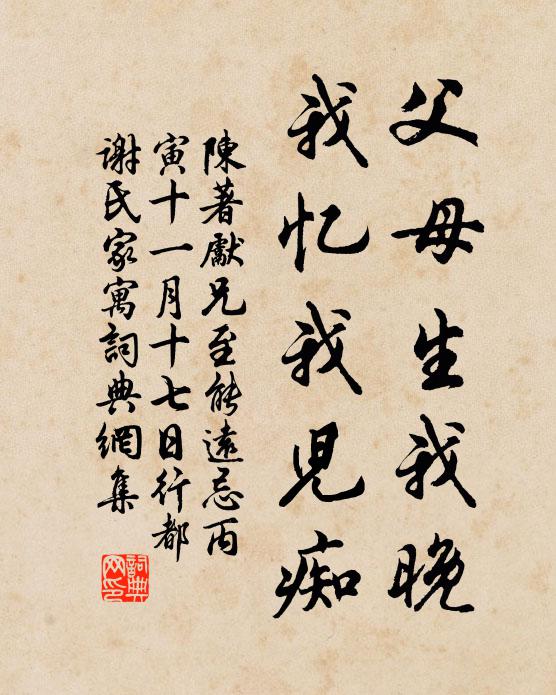 父母生我晚
我忆我児痴
陳著獻兄至能遠忌丙
寅十一月十七日行都
謝氏家寓詞典網集
詞典
网印